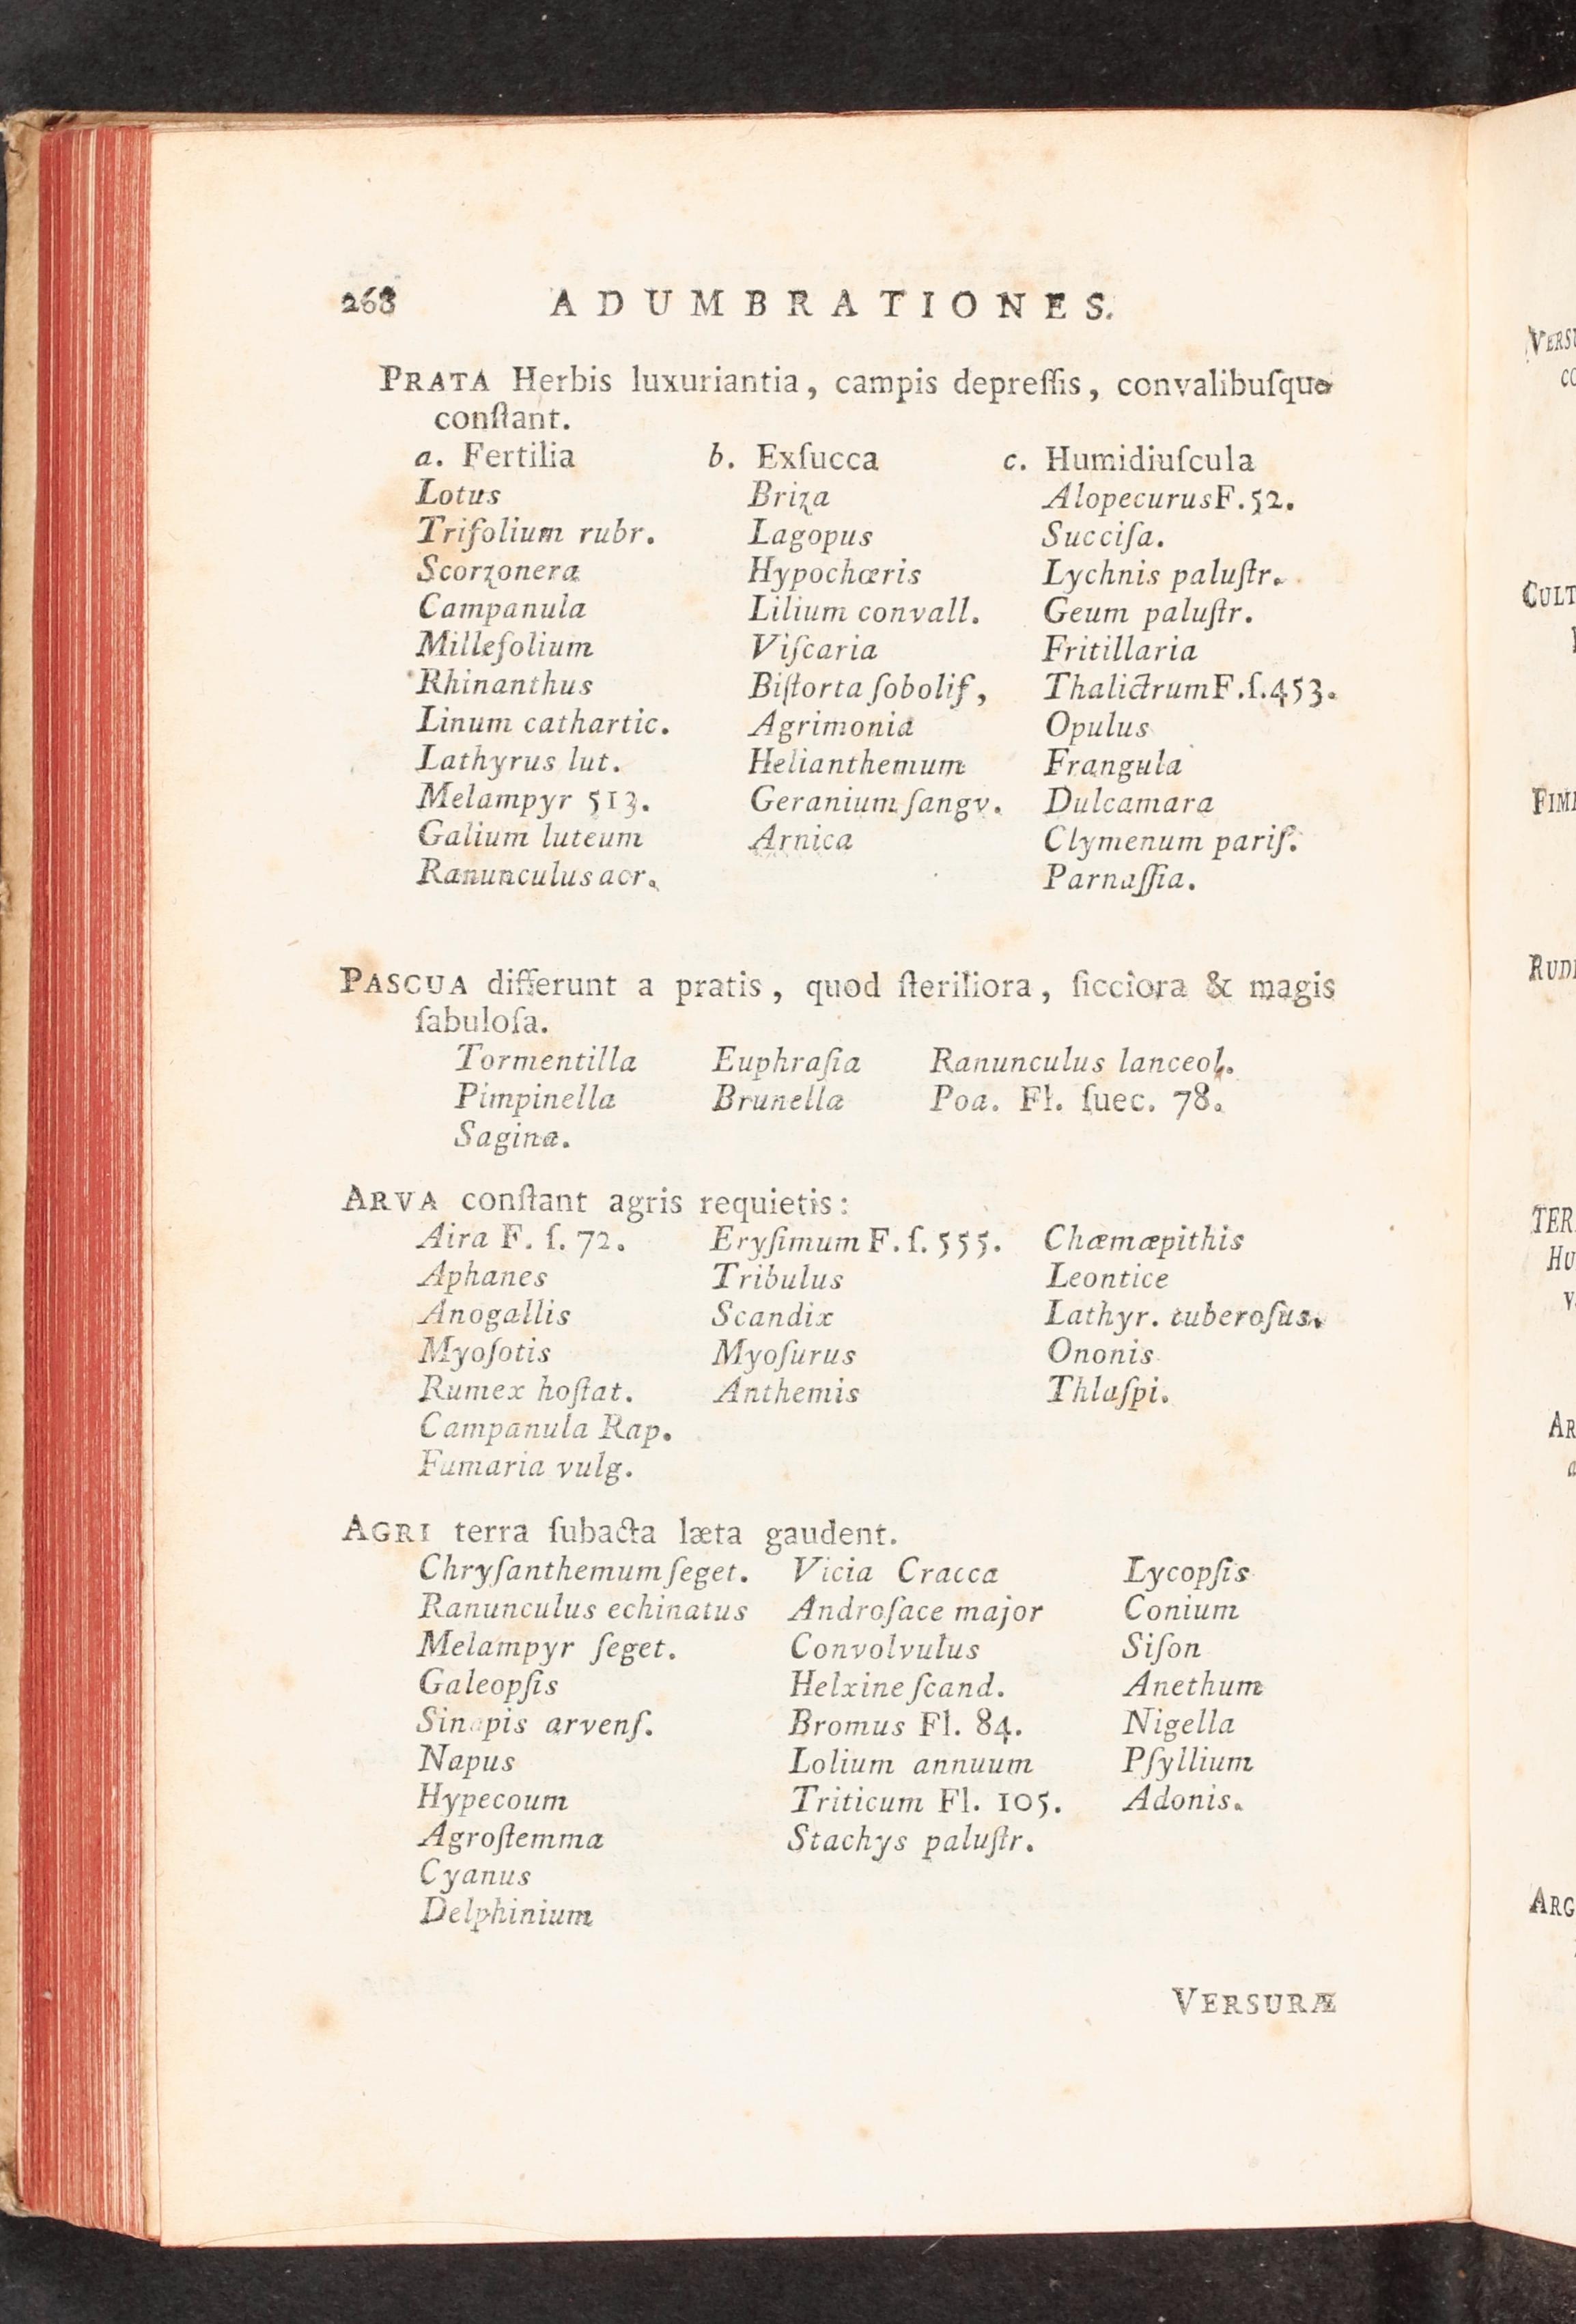 268 ADUMBRATIONES.
PRATA Herbis luxuriantia, campis depreſſis, convalibuſque
conſtant.
a. Fertilia b. Exſucca c. Humidiuſcula
Lotus Briza Alopecurus F. 52.
Trifolium rubr. Lagopus Succiſa.
Scorzonera Hypochœris Lychnis paluſtr.
Campanula Lilium convall. Geum paluſtr.
Millefolium Viſcaria Fritillaria
Rhinanthus Biſtorta ſobolif, Thalictrum F. ſ. 453.
Linum cathartic. Agrimonia Opulus
Lathyrus lut. Helianthemum Frangula
Melampyr 513. Geranium ſangv. Dulcamara
Galium luteum Arnica Clymenum pariſ.
Ranunculus acr. Parnaſſia.
PASCUA differunt a pratis, quod ſteriliora, ſicciora & magis
ſabuloſa.
Tormentilla Euphraſia Ranunculus lanceol.
Pimpinella Brunella Poa. Fl. ſuec. 78.
Sagina.
ARVA conſtant agris requietis:
Aira F. ſ. 72. Eryſimum F. ſ. 555. Chæmæpithis
Aphanes Tribulus Leontice
Anogallis Scandix Lathyr. tuberoſus.
Myoſotis Myoſurus Ononis
Rumex hoſtat. Anthemis Thlaſpi.
Campanula Rap.
Fumaria vulg.
AGRI terra ſubacta læta gaudent.
Chryſanthemum ſeget. Vicia Cracca Lycopſis
Ranunculus echinatus Androſace major Conium
Melampyr ſeget. Convolvulus Siſon
Galeopſis Helxine ſcand. Anethum
Sinapis arvenſ. Bromus Fl. 84. Nigella
Napus Lolium annuum Pſyllium
Hypecoum Triticum Fl. 105. Adonis.
Agroſtemma Stachys paluſtr.
Cyanus
Delphinium
VERSURÆ